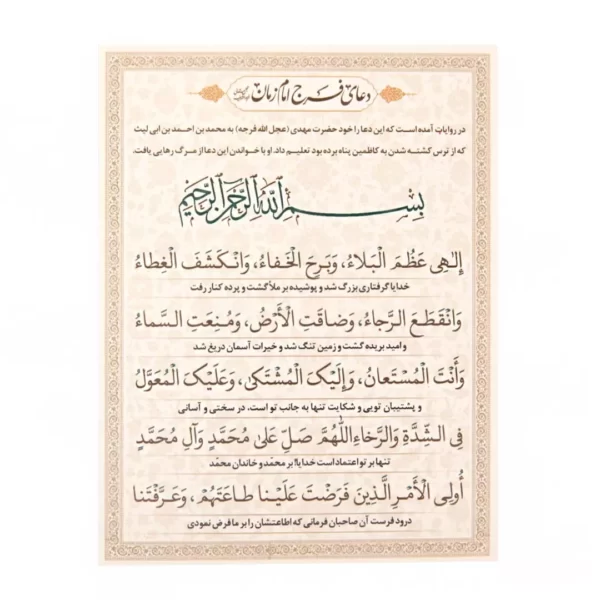 دعای فرج امام زمان
در روایات آمده است که این دعا را خود حضرت مهدی (عجل الله فرجه) به محمد بن احمد بن ابی لیث
که از ترس کشته شدن به کاظمین پناه برده بود تعلیم داد. او با خواندن این دعا از مرگ رهایی یافت.
بِسْمِ اللهِ الرَّحْمنِ الرَّحِیمِ
إِلٰهِی عَظُمَ الْبَلاءُ، وَبَرِحَ الْخَفاءُ، وَانْکَشَفَ الْغِطاءُ
خدایا گرفتاری بزرگ شد و پوشیده بر ملا گشت و پرده کنار رفت
وَانْقَطَعَ الرَّجاءُ، وَضاقَتِ الْأَرْضُ، وَمُنِعَتِ السَّماءُ
و امید بریده گشت و زمین تنگ شد و خیرات آسمان دریغ شد
وَأَنْتَ الْمُسْتَعانُ، وَإِلَیْکَ الْمُشْتَکیٰ، وَعَلَیْکَ الْمُعَوَّلُ
و پشتیبان تویی و شکایت تنها به جانب تو است، در سختی و آسانی
فِی الشِّدَّةِ وَالرَّخاءِ اللّٰهُمَّ صَلِّ عَلیٰ مُحَمَّدٍ وَآلِ مُحَمَّدٍ
تنها بر تو اعتماد است خدایا! بر محمّد و خاندان محمّد
أُولِی الْأَمْرِ الَّذِینَ فَرَضْتَ عَلَیْنا طاعَتَهُمْ، وَعَرَّفْتَنا
درود فرست آن صاحبان فرمانی که اطاعتشان را بر ما فرض نمودی